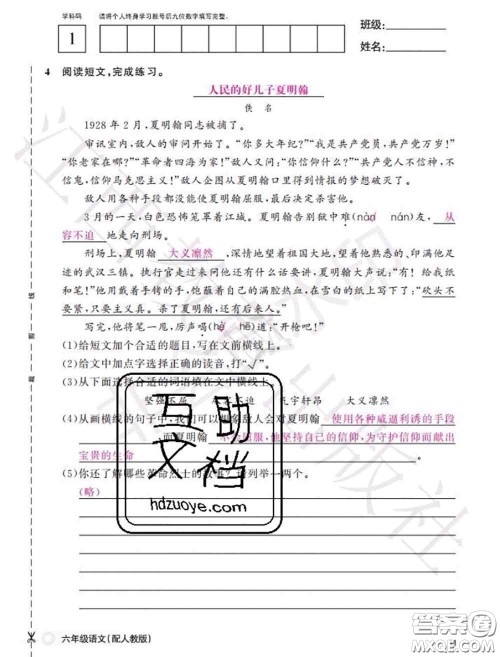 学科码
请将个人终身学习账号后九位数字填写完整。
1
班级:
姓名:
4 阅读短文,完成练习。
人民的好儿子夏明翰
佚 名
1928 年 2 月,夏明翰同志被捕了。
审讯室内,敌人的审问开始了。“你多大年纪?”“我是共产党员,共产党万岁!”
“你老家在哪?”“革命者四海为家!”敌人又问:“你信仰什么?”“共产党人不信神,不
信鬼,信仰马克思主义!”敌人企图从夏明翰口里得到情报的梦想破灭了。
敌人用各种手段都没能使夏明翰屈服,最后决定杀害他。
3 月的一天,白色恐怖笼罩着江城。夏明翰告别狱中难(nào nán)友, 从
容不迫 地走向刑场。
刑场上,夏明翰 大义凛然 ,深情地望着祖国大地,望着他熟悉的、印满他足
迹的武汉三镇。执行官走过来问他还有什么话要讲,夏明翰大声说:“有!给我纸
和笔!”他用戴着手铐的手,饱蘸着自己的满腔热血,在雪白的纸上写下了:“砍头不
要紧,只要主义真。杀了夏明翰,还有后来人。”
写完,他将笔一甩,厉声喝(hè hē)道:“开枪吧!”
(1)给短文加个合适的题目,写在文前横线上。
(2)给文中加点字选择正确的读音,打“√”。
(3)从下面选择合适的词语填在文中横线上。
坚强不屈 从容不迫 气宇轩昂 大义凛然
(4)从画横线的句子中,我们可以想象敌人会对夏明翰 使用各种威逼利诱的手段
,而夏明翰 不为屈服,他坚持自己的信仰,为守护信仰献出
宝贵的生命
(5)你还了解哪些革命烈士的故事?请列举一两个。
(略)
互助
文档
hdzuoye.com
六年级语文(配人教版)
答案圈